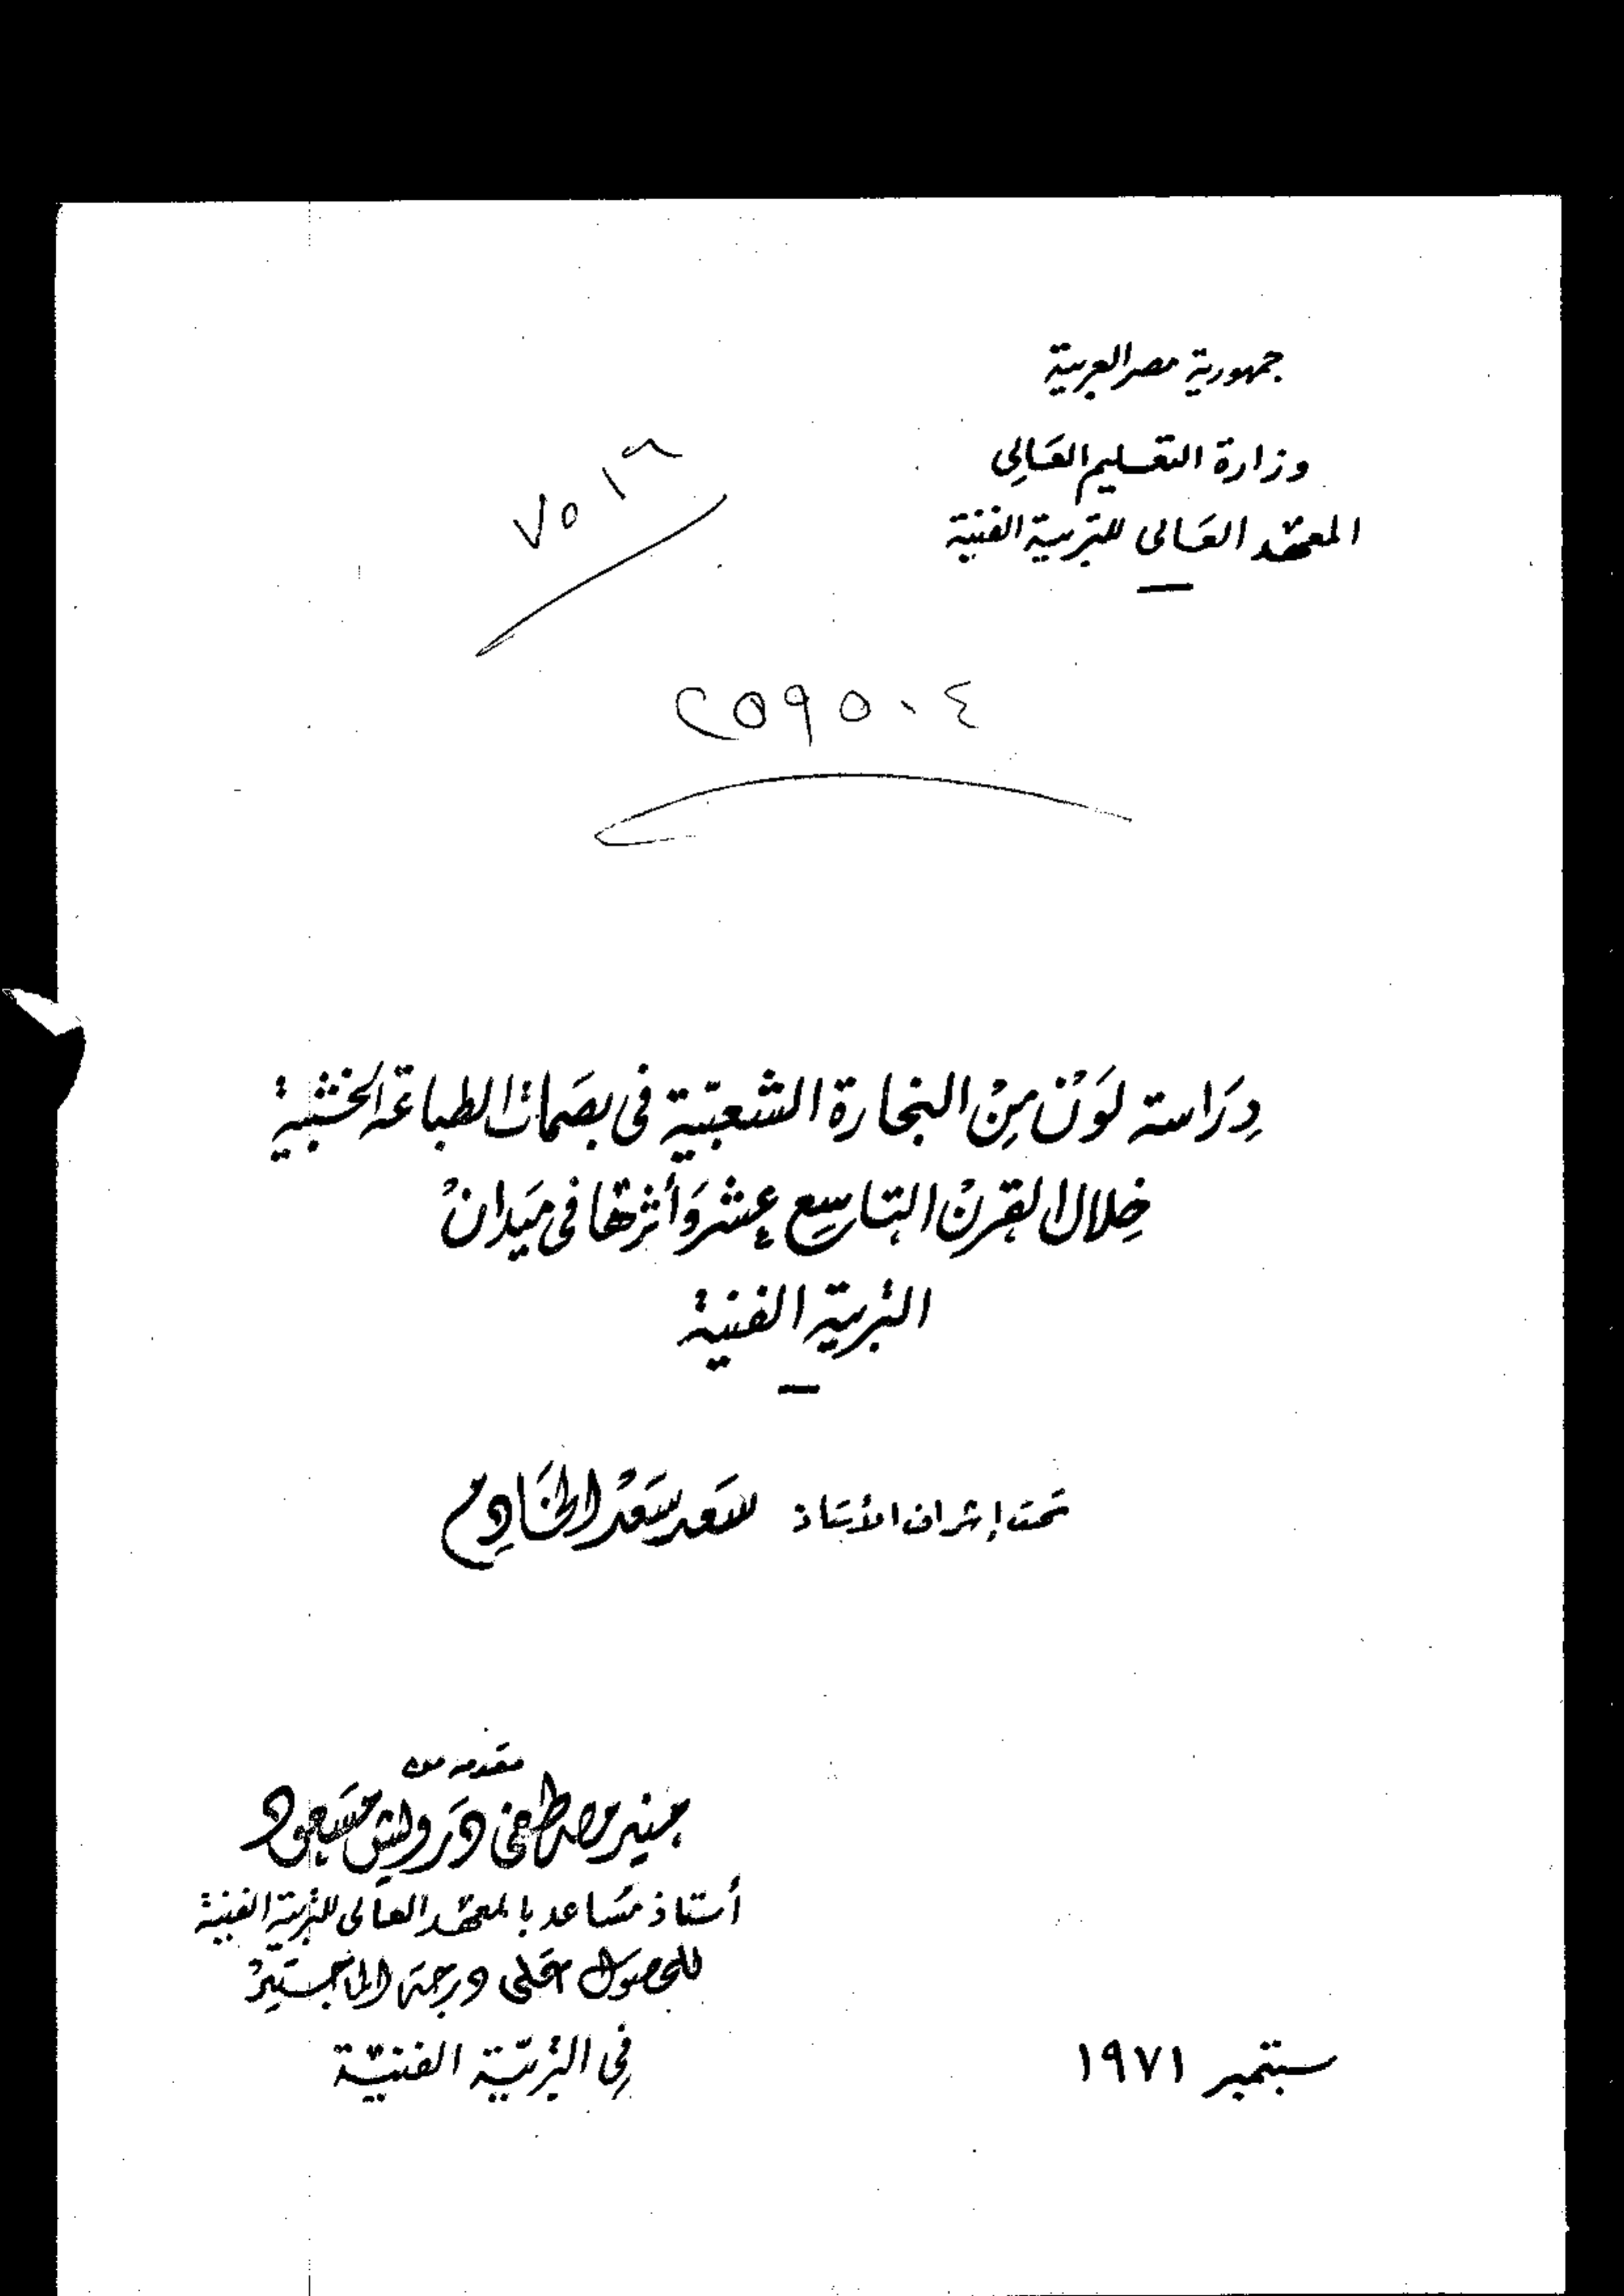 جمهورية مصر العربية
وزارة التعليم العالي
المعهد العالى للتربية الفنية
٢٥٩٥٠٤
دراسة لون من النجارة الشعبية فى بصمات الطباعة الخشبية
خلال القرن التاسع عشر وأثرها فى ميدان
التربية الفنية
تحت إشراف الأستاذ سعد سعد الخادم
مقدمه من
منير مصطفى درويش مسعود
أستاذ مساعد بالمعهد العالى للتربية الفنية
للحصول على درجة الماجستير
في التربية الفنية
سبتمبر ١٩٧١